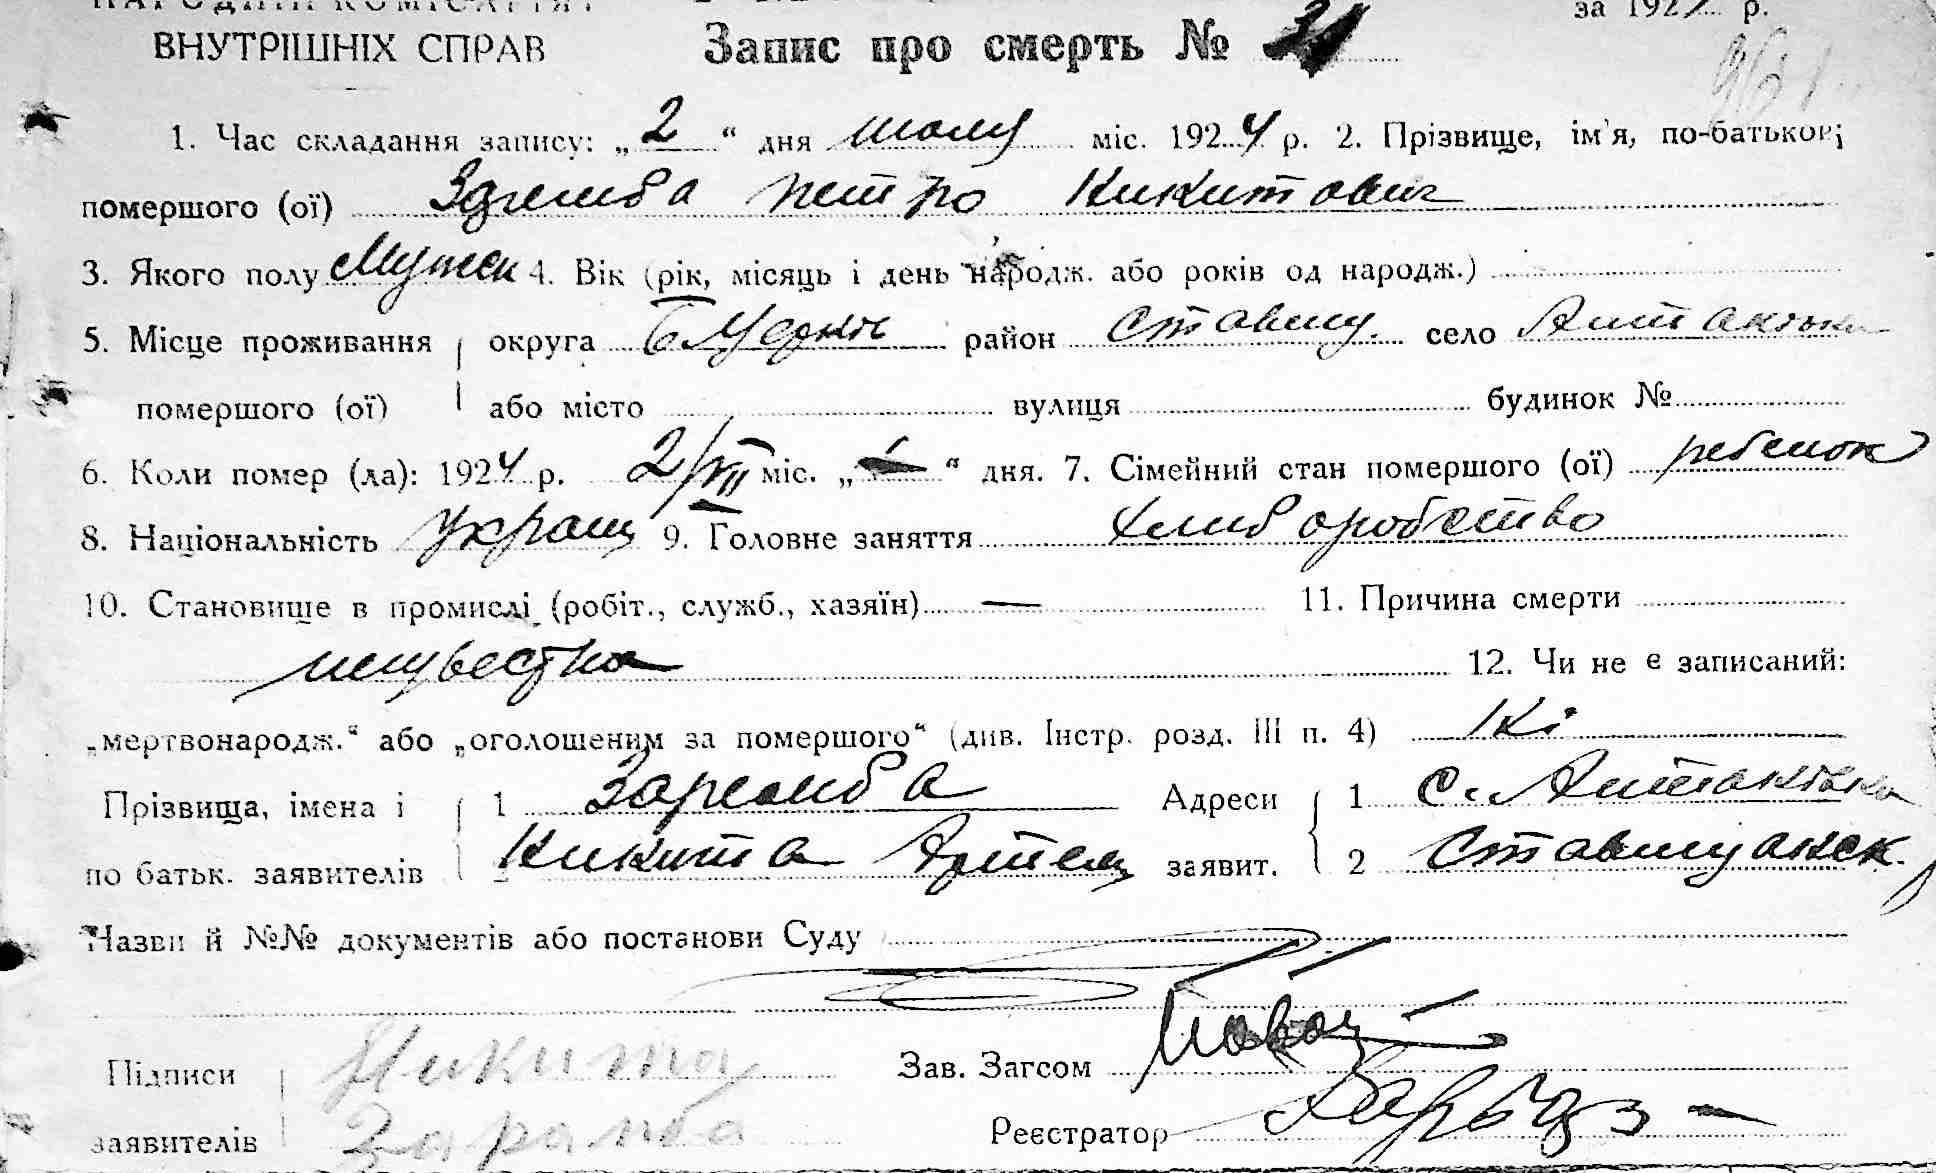 НАРОДНІЙ КОМІСАРІЯТ
ВНУТРІШНІХ СПРАВ Запис про смерть № 31 за 192 р.
1. Час складання запису: „2“ дня июля міс. 1924 р. 2. Прізвище, ім'я, по-батькові
помершого (ої) Петро Никитович
3. Якого полу Мужск 4. Вік (рік, місяць і день народж. або років од народж.)
5. Місце проживання округа Б Церків район Ставищ. село
помершого (ої) або місто вулиця будинок №
6. Коли помер (ла): 1924 р. 2/VII міс. „ “ дня. 7. Сімейний стан помершого (ої) ребенок
8. Національність Украин 9. Головне заняття Хлиборобство
10. Становище в промислі (робіт., служб., хазяїн) — 11. Причина смерти
неизвестна 12. Чи не є записаний:
„мертвонародж.“ або „оголошеним за помершого“ (див. Інстр. розд. III п. 4) Ні
Прізвища, імена і 1 Заремба Адреси 1 с.
по батьк. заявителів 2 Никита заявит. 2
Назви й №№ документів або постанови Суду
Підписи Никита Зав. Загсом
заявителів Заремба Реєстратор